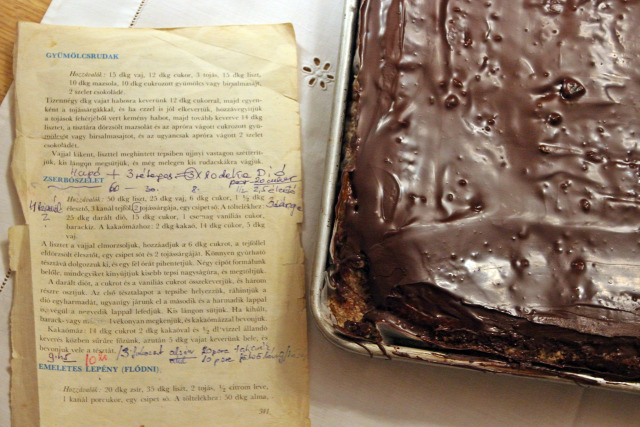 GYÜMÖLCSRUDAK
Hozzávalók: 15 dkg vaj, 12 dkg cukor, 3 tojás, 15 dkg liszt,
10 dkg mazsola, 10 dkg cukrozott gyümölcs vagy birsalmasajt,
2 szelet csokoládé.
Tizennégy dkg vajat habosra keverünk 12 dkg cukorral, majd egyen-
ként a tojássárgákkal, és ha ezzel is jól elkevertük, hozzávegyítjük
a tojások fehérjéből vert kemény habot, majd tovább keverve 14 dkg
lisztet, a tisztára dörzsölt mazsolát és az apróra vágott cukrozott gyü-
mölcsöt vagy birsalmasajtot, és az ugyancsak apróra vágott 2 szelet
csokoládét.
Vajjal kikent, liszttel meghintett tepsiben ujjnyi vastagon szétterít-
jük, kis lángon megsütjük, és még melegen kis rudacskákra vágjuk.
4 lapd + 3 réteges = 3 x 20 deka Dió
ZSERBÓSZELET
60
Hozzávalók: 50 dkg liszt, 25 dkg vaj, 6 dkg cukor, 1 ½ dkg
élesztő, 3 kanál tejföl, 2 tojássárgája, egy csipet só. A töltelékhez:
25 dkg darált dió, 15 dkg cukor, 1 csomag vaníliás cukor,
baracklíz. A kakaómázhoz: 2 dkg kakaó, 14 dkg cukor, 5 dkg
vaj.
A lisztet a vajjal elmorzsoljuk, hozzáadjuk a 6 dkg cukrot, a tejföllel
eldörzsölt élesztőt, egy csipet sót és 2 tojássárgáját. Könnyen gyúrható
tésztává dolgozzuk ki, és egy fél órát pihentetjük. Négy cipót formálunk
belőle, mindegyiket kinyújtjuk kisebb tepsi nagyságúra, és megtöltjük.
A darált diót, a cukrot és a vaníliás cukrot összekeverjük, és három
részre osztjuk. Az első tésztalapot a tepsibe helyezzük, ráhintjük a
dió egyharmadát, ugyanígy járunk el a második és a harmadik lappal
végül a negyedik lappal lefedjük. Kis lángon sütjük. Ha kihűlt,
barack- vagy vékonyan megkenjük, és kakaómázzal bevonjuk.
Kakaómáz: 14 dkg cukrot 2 dkg kakaóval és ½ dl vízzel állandó
keverés közben sűrűre főzünk, azután 5 dkg vajat keverünk bele, és
bevonjuk vele a tésztát.
EMELETES LEPÉNY (FLÓDNI)
Hozzávalók: 20 dkg zsír, 35 dkg liszt, 2 tojás, ½ citrom leve,
1 kanál porcukor, egy csipet só. A töltelékhez: 50 dkg alma,
511